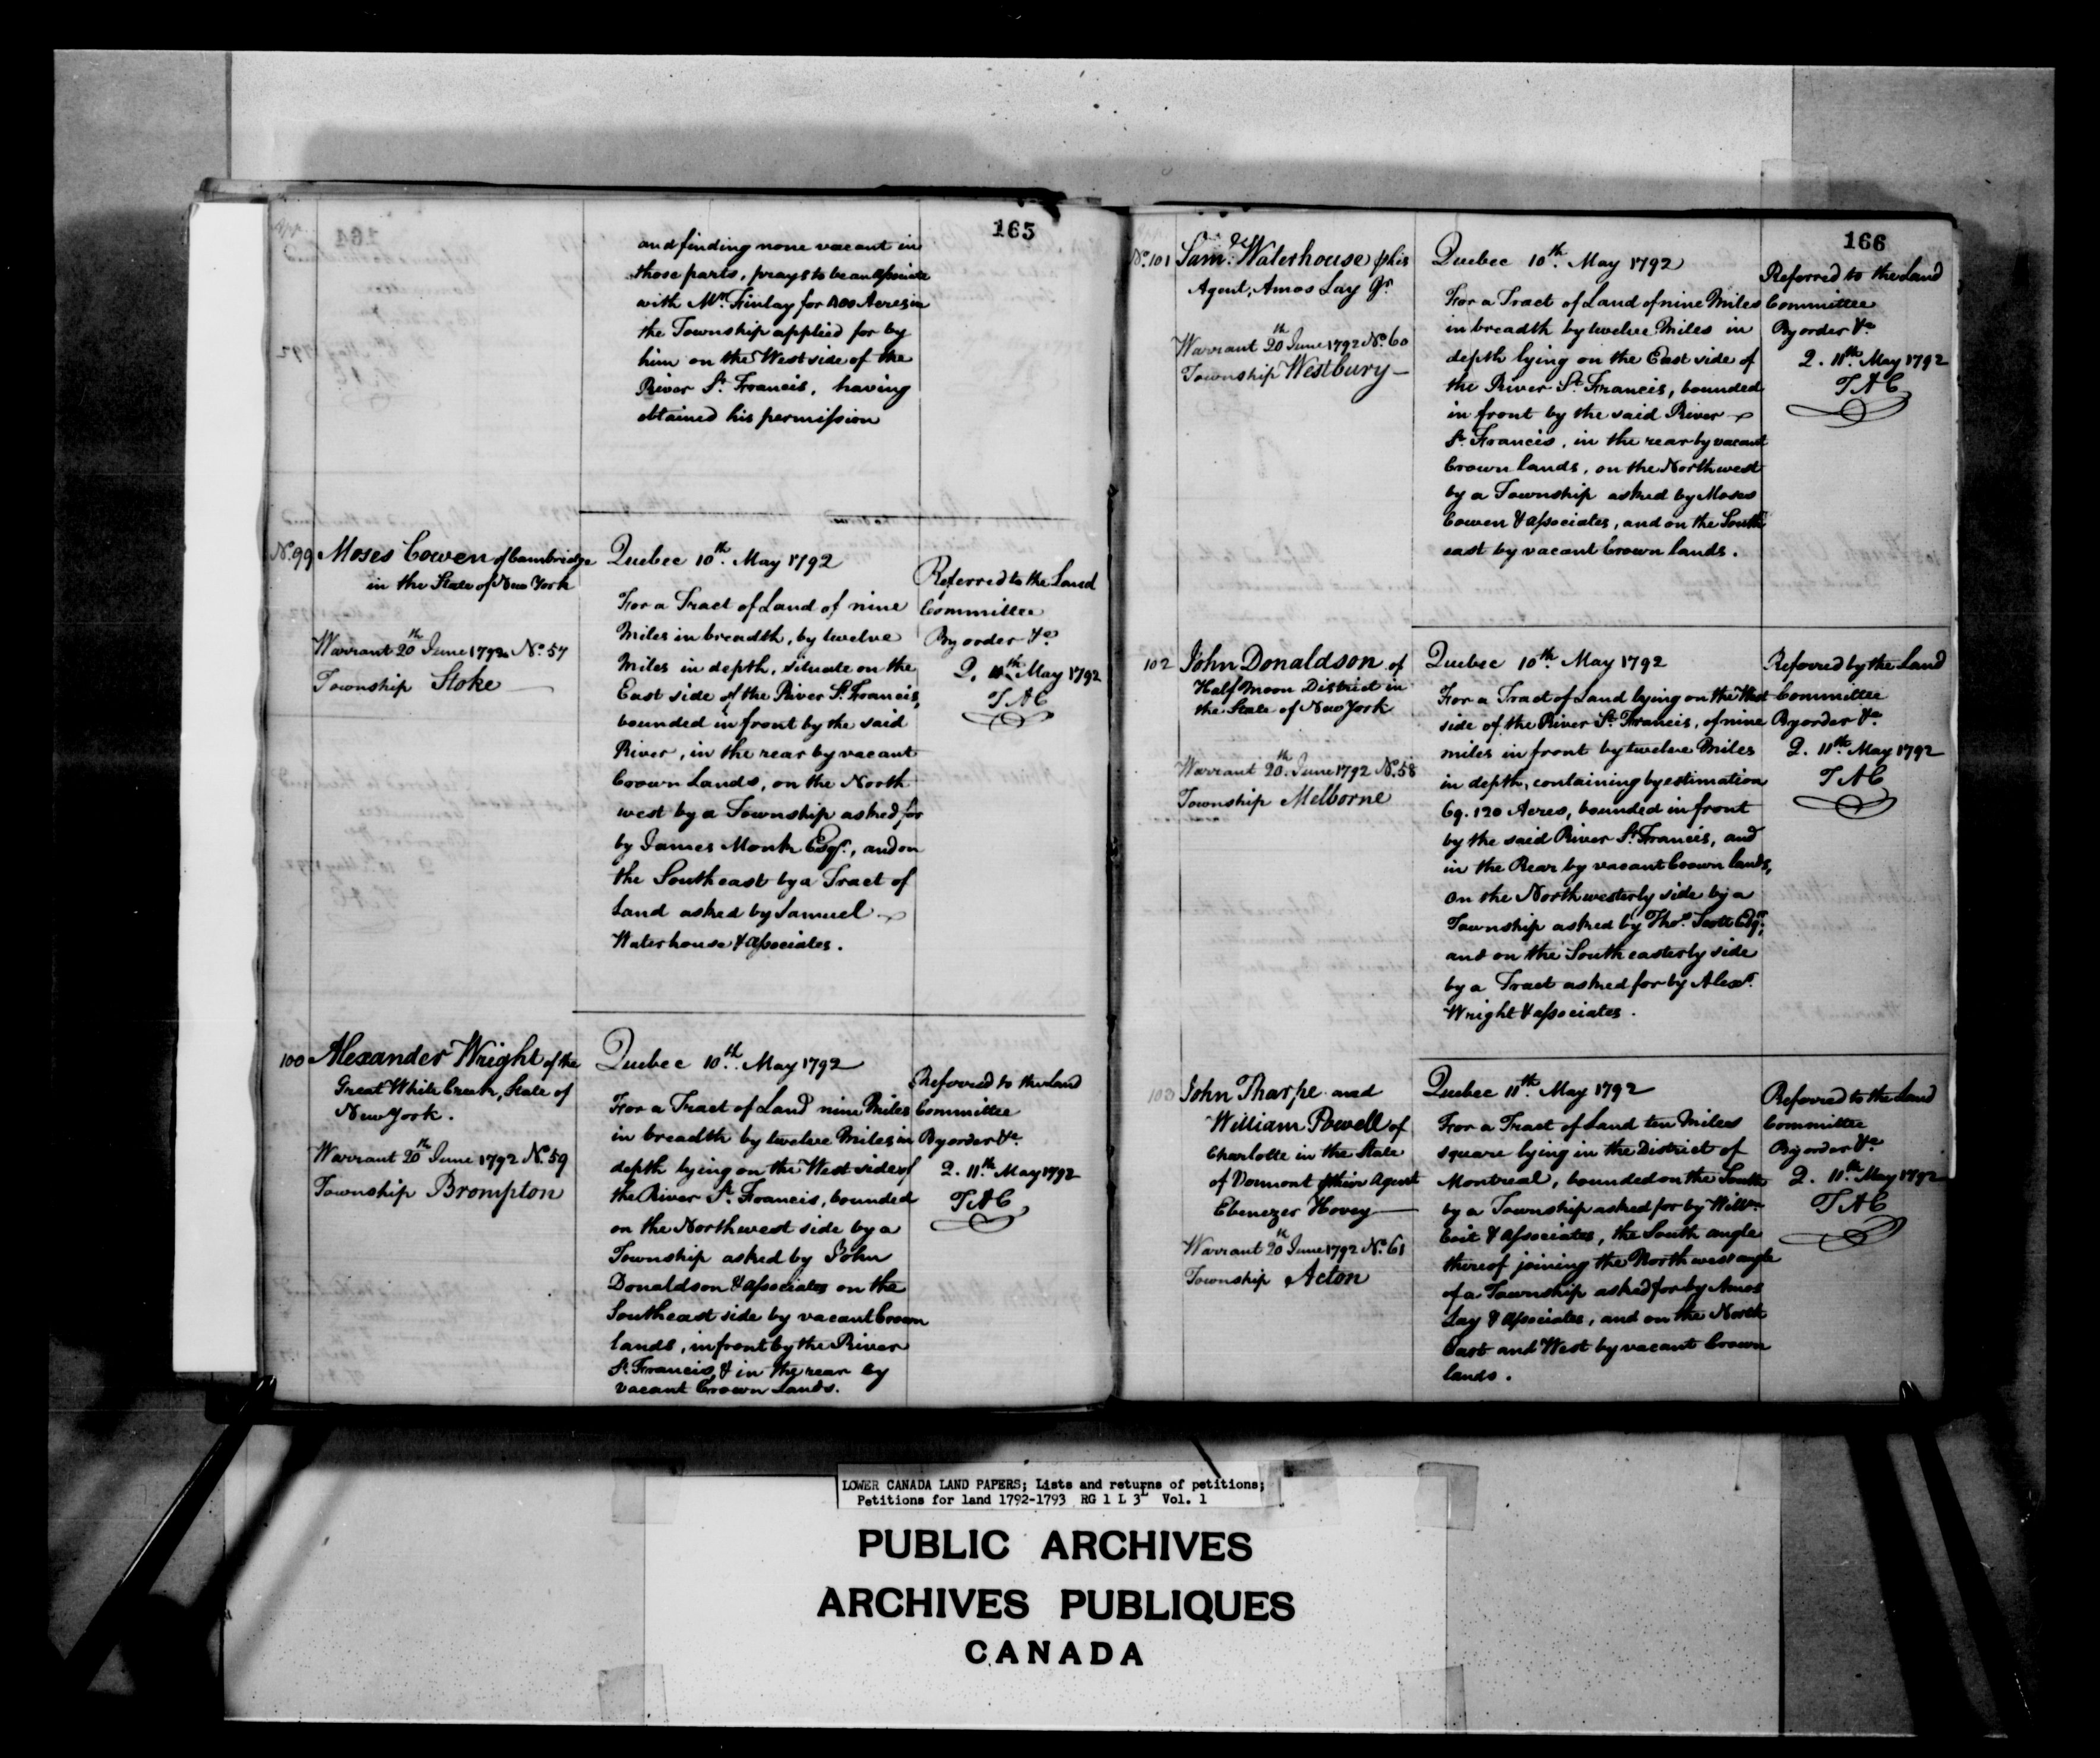 165
and finding none vacant in
those parts, prays to be an associate
with Mr. Finlay for 1200 Acres in
the Township applied for by
him on the West side of the
River St. Francis, having
obtained his permission
No. 99 Moses Cowen of Cambridge
in the State of New York
Warrant 20th June 1792 No. 57
Township Stoke
Quebec 10th. May 1792
For a Tract of Land of nine
Miles in breadth, by twelve
Miles in depth, situate on the
East side of the River St. Francis,
bounded in front by the said
River, in the rear by vacant
Crown Lands, on the North
west by a Township asked for
by James Monk Esqr., and on
the South east by a Tract of
Land asked by Samuel
Waterhouse & associates.
Referred to the Land
Committee
By order &c.
Q. 11th May 1792
T A C
100 Alexander Wright of the
Great White Creek, State of
New York.
Warrant 20th June 1792 No. 59
Township Brompton
Quebec 10th. May 1792
For a Tract of Land nine Miles
in breadth by twelve Miles in
depth lying on the West side of
the River St. Francis, bounded
on the Northwest side by a
Township asked by John
Donaldson & associates on the
Southeast side by vacant Crown
lands, in front by the River
St. Francis, & in the rear by
vacant Crown Lands.
Referred to the Land
Committee
By order &c.
Q. 11th May 1792
T A C
166
No. 101 Saml. Waterhouse p his
Agent, Amos Lay Jr.
Warrant 20th June 1792 No. 60
Township Westbury
Quebec 10th. May 1792
For a Tract of Land of nine Miles
in breadth by twelve Miles in
depth lying on the East side of
the River St. Francis, bounded
in front by the said River
St. Francis, in the rear by vacant
Crown lands, on the Northwest
by a Township asked by Moses
Cowen & associates, and on the South
east by vacant Crown lands.
Referred to the Land
Committee
By order &c.
Q. 11th May 1792
T A C
102 John Donaldson of
Half Moon District in
the State of New York
Warrant 20th. June 1792 No. 58
Township Melborne
Quebec 10th. May 1792
For a Tract of Land lying on the West
side of the River St. Francis, of nine
miles in front by twelve Miles
in depth, containing by estimation
69.120 Acres, bounded in front
by the said River St. Francis, and
in the Rear by vacant Crown lands,
on the Northwesterly side by a
Township asked by Thos. Scott Esqr.,
and on the South easterly side
by a Tract asked for by Alexr.
Wright & associates.
Referred by the Land
Committee
By order &c.
Q. 11th. May 1792
T A C
103 John Tharpe and
William Powell of
Charlotte in the State
of Vermont p their Agent
Ebenezer Hovey
Warrant 20th June 1792 No. 61
Township Acton
Quebec 11th. May 1792
For a Tract of Land ten Miles
square lying in the District of
Montreal, bounded on the South
by a Township asked for by Willm.
Coit & associates, the South angle
thereof joining the Northwest angle
of a Township asked for by Amos
Lay & associates, and on the North
East and West by vacant Crown
lands.
Referred to the Land
Committee
By order &c.
Q. 11th. May 1792
T A C
LOWER CANADA LAND PAPERS; Lists and returns of petitions;
Petitions for land 1792-1793 RG 1 L 3L Vol. 1
PUBLIC ARCHIVES
ARCHIVES PUBLIQUES
CANADA